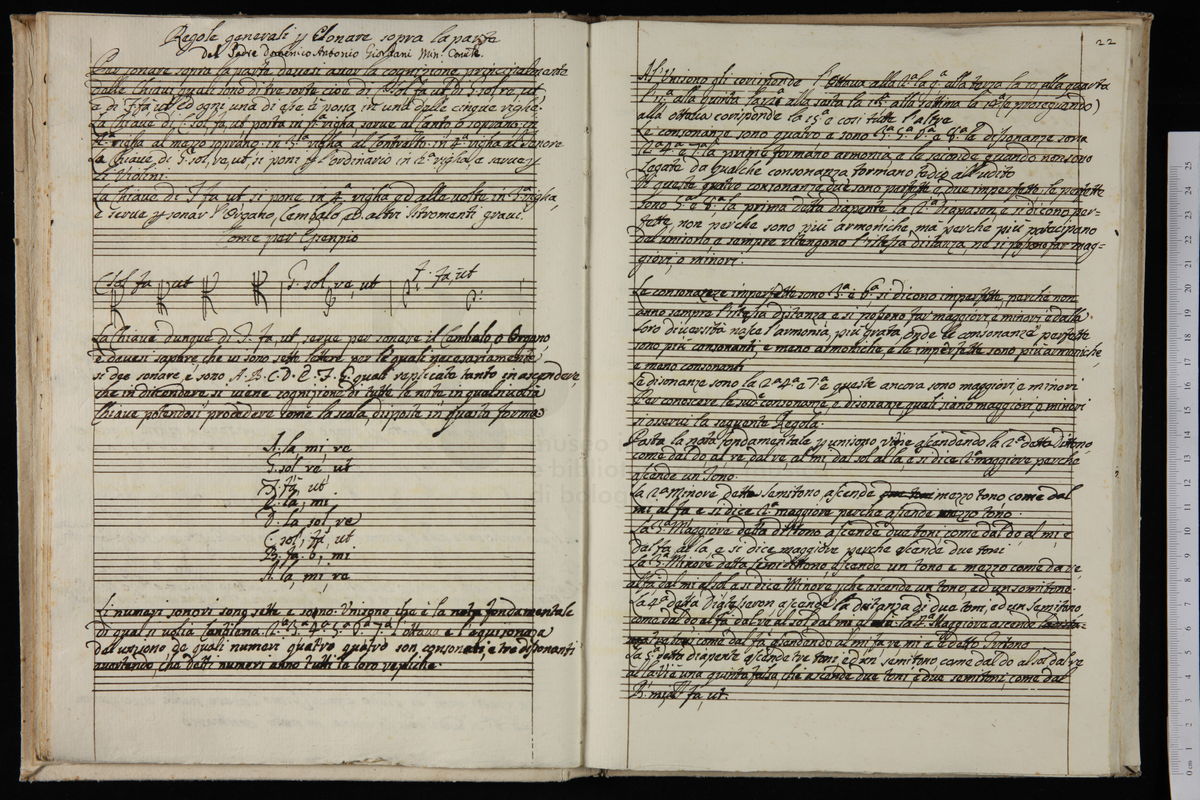 Regole generali p Sonare sopra la parte
del Padre Domenico Antonio Giordani Min: Convle.
Per sonare sopra la parte devesi aver la cognizione principalmente
delle Chiavi quali sono di tre sorte cioè di C. sol, fa, ut di G. sol, re, ut
e di F. fa, ut ed ogn' una di q.te si posa in una delle cinque righe.
La Chiave di C. sol, fa, ut posta in p.a riga serve al Canto, o soprano, in
2.a riga al mezo soprano, in 3.a riga al Contralto, in 4.a riga al Tenore
La Chiave di G. sol, re, ut, si pone p l'ordinario in 2.a riga, e serve p
li Violini.
La Chiave di F. fa ut si pone in 4.a riga ed alle volte in 3.a riga,
e serve p sonar l'Organo, Cembalo, ed altri stromenti gravi
Come per Esempio
C. sol, fa, ut G. sol, re, ut F. fa, ut
La Chiave dunque di F. fa, ut serve per sonare il Cembalo, o Organo
e devesi sapere, che vi sono sette lettere per le quali necessariamente
si dee sonare, e sono A. B. C. D. E. F. G. quali replicate tanto in ascendere,
che in discendere, si viene cognizione di tutte le note in qualsivoglia
Chiave potendosi procedere come la scala, disposta in questa forma
A. la, mi, re
G. sol, re, ut
F. fa, ut
E. la, mi.
D. la, sol, re
C. sol, fa, ut
B. fa, b, mi
A. la, mi, re
Li numeri sonori sono sette, e sono. Unisono che è la nota fondamentale
di qual si voglia Cantilena. 2.a 3.a 4.a 5.a 6.a 7.a L'ottava è l'equisonana
dal unsono de quali numeri quatro son consonati, e tre dissonanti
avertendo, che detti numeri anno tutti la loro repliche.
22
Al Unisono gli corisponde l'Ottava alla 2.a la 9.a alla terza la 10 alla quarta
l'11.a alla quinta la 12.a alla sesta la 13.a alla settima la 14.a (e proseguendo)
alla ottava corisponde la 15.a e cosi tutte l'altre
Le consonanze sono quatro e sono 3.a 5.a 6.a e 8.a le disonanze sono
la 2.a 4.a e 7.a le prime formano armonia, e le seconde quando non sono
Legate da qualche consonanza formano tedio all'udito
Di queste quatro consonanze due sono perfette, e due imperfette, le perfette
sono 5.a e 8.a la prima detta diapente, la 2.a diapason, e si dicono per-
fette, non perche sono più armoniche, ma perche più partecipano
del unisono e sempre ritengono l'istessa distanza, ne si possono far mag-
giori, o minori.
Le consonanze imperfette sono 3.a e 6.a si dicono imperfette, perche non
anno sempre l'istessa distanza e si possono far maggiori, e minori e dalla
loro diversità nasce l'armonia, più grata, onde le consonanze perfette
sono più consonanti, e meno armoniche, e le imperfette sono più armoniche,
e meno consonanti
Le disonanze sono la 2.a 4.a e 7.a e queste ancora sono maggiori, e minori
Per conoscere le sud.e consonanze, e disonanze quali siano maggiori, o minori
si osservi la seguente Regola.
Posta la nota fondamentale p unisono viene ascendendo la 2.a detta Dittono,
come dal do al re, dal re, al mi, dal sol al la, e si dice 2.a maggiore perche
ascende un Tono.
La 2.a Minore detta Semitono ascende mezzo tono come dal
mi al fa e si dice 2.a maggiore perche ascende mezzo tono.
La 3.a Maggiore detta dittono ascende due toni come dal do al mi e
dal fa al la, e si dice maggiore perche ascende due toni
La 3.a Minore detta semidittono, ascende un tono e mezzo come da re,
al fa dal mi al sol e si dice Minore p che ascende un tono, ed un semitono.
La 4.a detta Diatesseron ascende la distanza di due toni, ed un semitono
come dal do al fa dal re al sol dal mi al la. La 4.a Maggiore ascende
tre toni come dal fa ascendendo al mi e detto Tritono
La 5.a detta diapente ascende tre toni ed un semitono, come dal do al sol dal re
al la vi è una quinta falsa, che ascende due toni, e due semitoni, come dal
B. mi, al F. fa, ut.